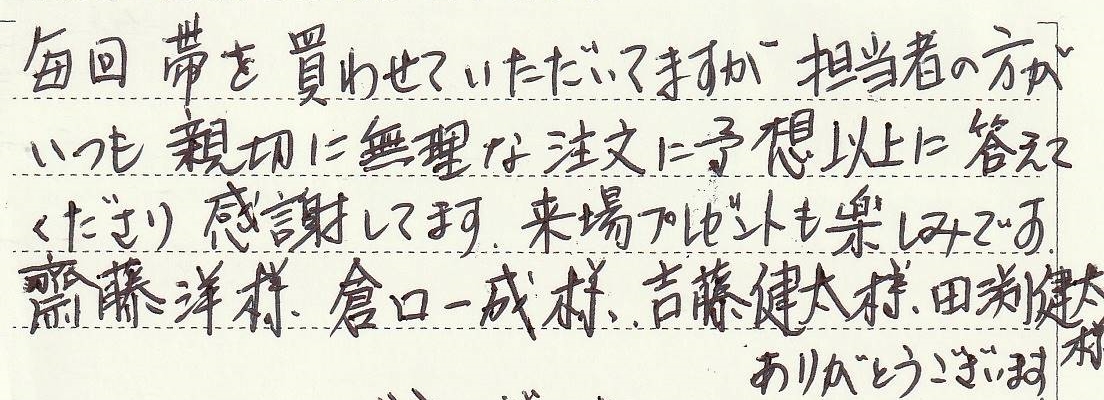 毎回 帯を 買わせていただいてますが 担当者の方が
いつも 親切に 無理な 注文に予想以上に 答えて
くださり 感謝してます. 来場プレゼントも楽しみです.
齋藤洋様、倉口一成様、吉藤健太様、田渕健太
様
ありがとうございます